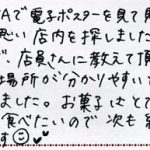 Aで電子ポスターを見て
思い店内を探しました
、店員さんに教えて頂
場所が分かりやすい
ました。お菓子はとて
食べたいので次も
す